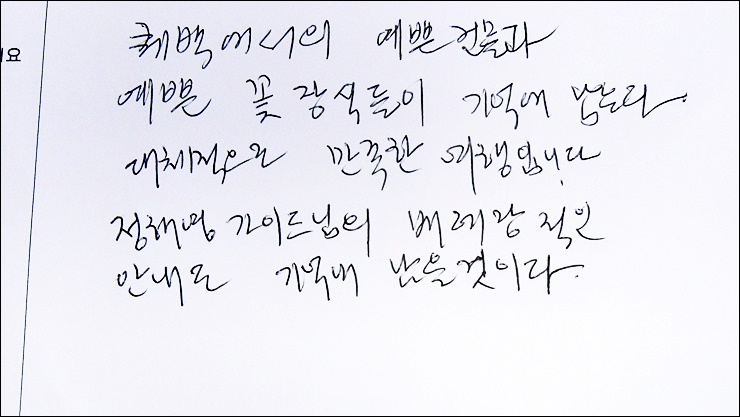 요
퀘백에서의 예쁜 건물과
예쁜 꽃 장식들이 기억에 남는다.
대체적으로 만족한 여행입니다
정해명 가이드님의 베레랑 적인
안내도 기억에 남을것이다.